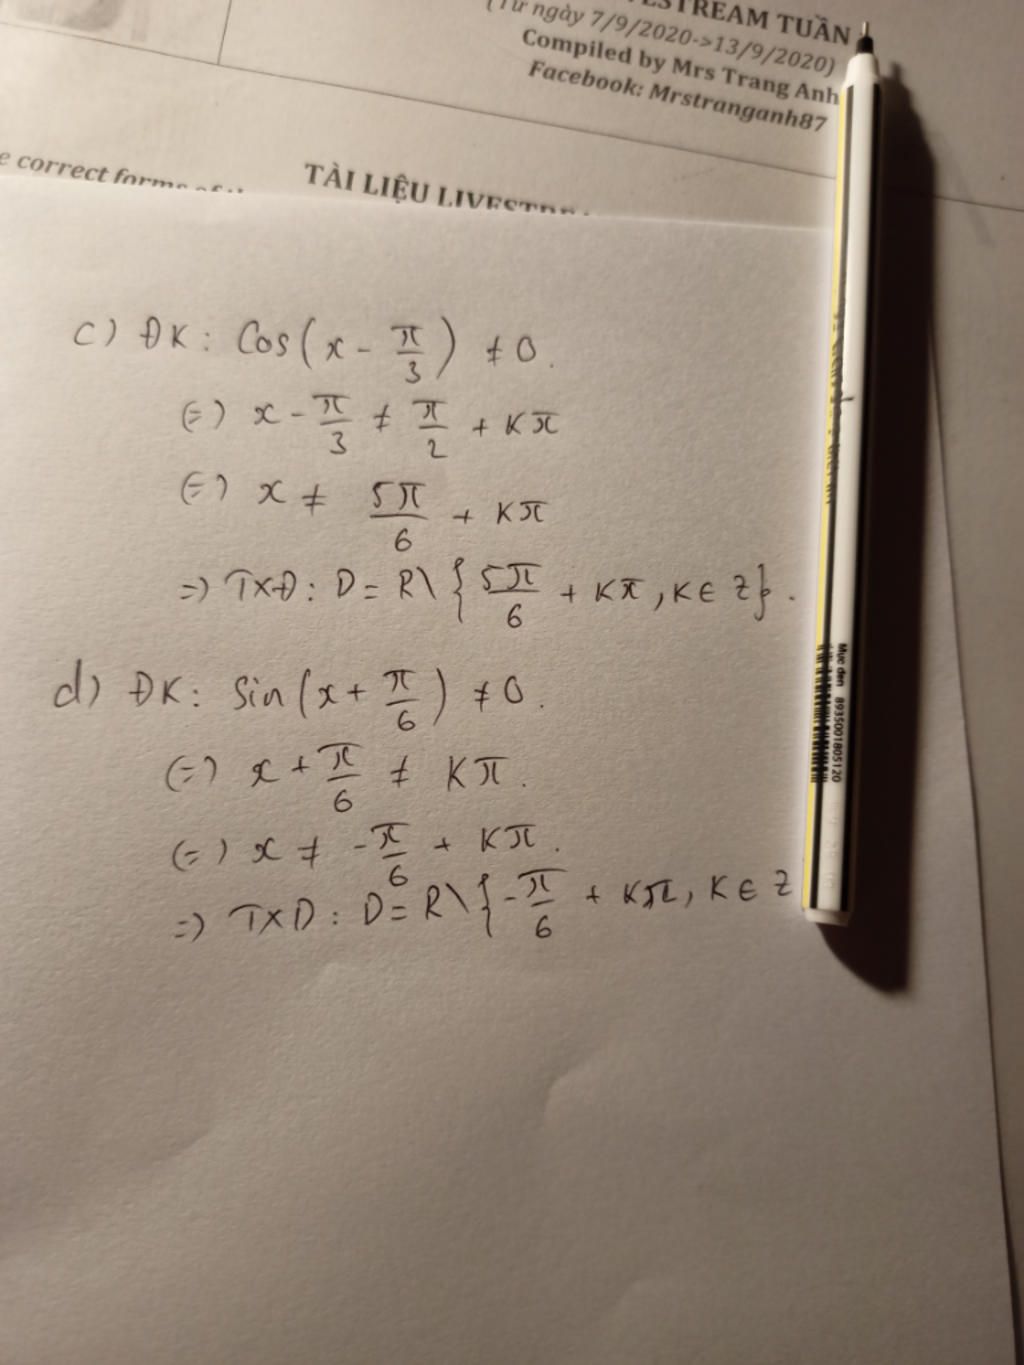 LIVESTREAM TUẦN
(Từ ngày 7/9/2020->13/9/2020)
Compiled by Mrs Trang Anh
Facebook: Mrstranganh87
correct forms of
TÀI LIỆU LIVESTREAM
c) ĐK: Cos(x - π/3) ≠ 0.
(=) x - π/3 ≠ π/2 + Kπ
(=) x ≠ 5π/6 + Kπ
=) TXĐ: D = R\{5π/6 + Kπ, K ∈ Z}.
d) ĐK: Sin(x + π/6) ≠ 0.
(=) x + π/6 ≠ Kπ.
(=) x ≠ -π/6 + Kπ.
=) TXD: D = R\{-π/6 + Kπ, K ∈ Z
Mực đen 8935001805120